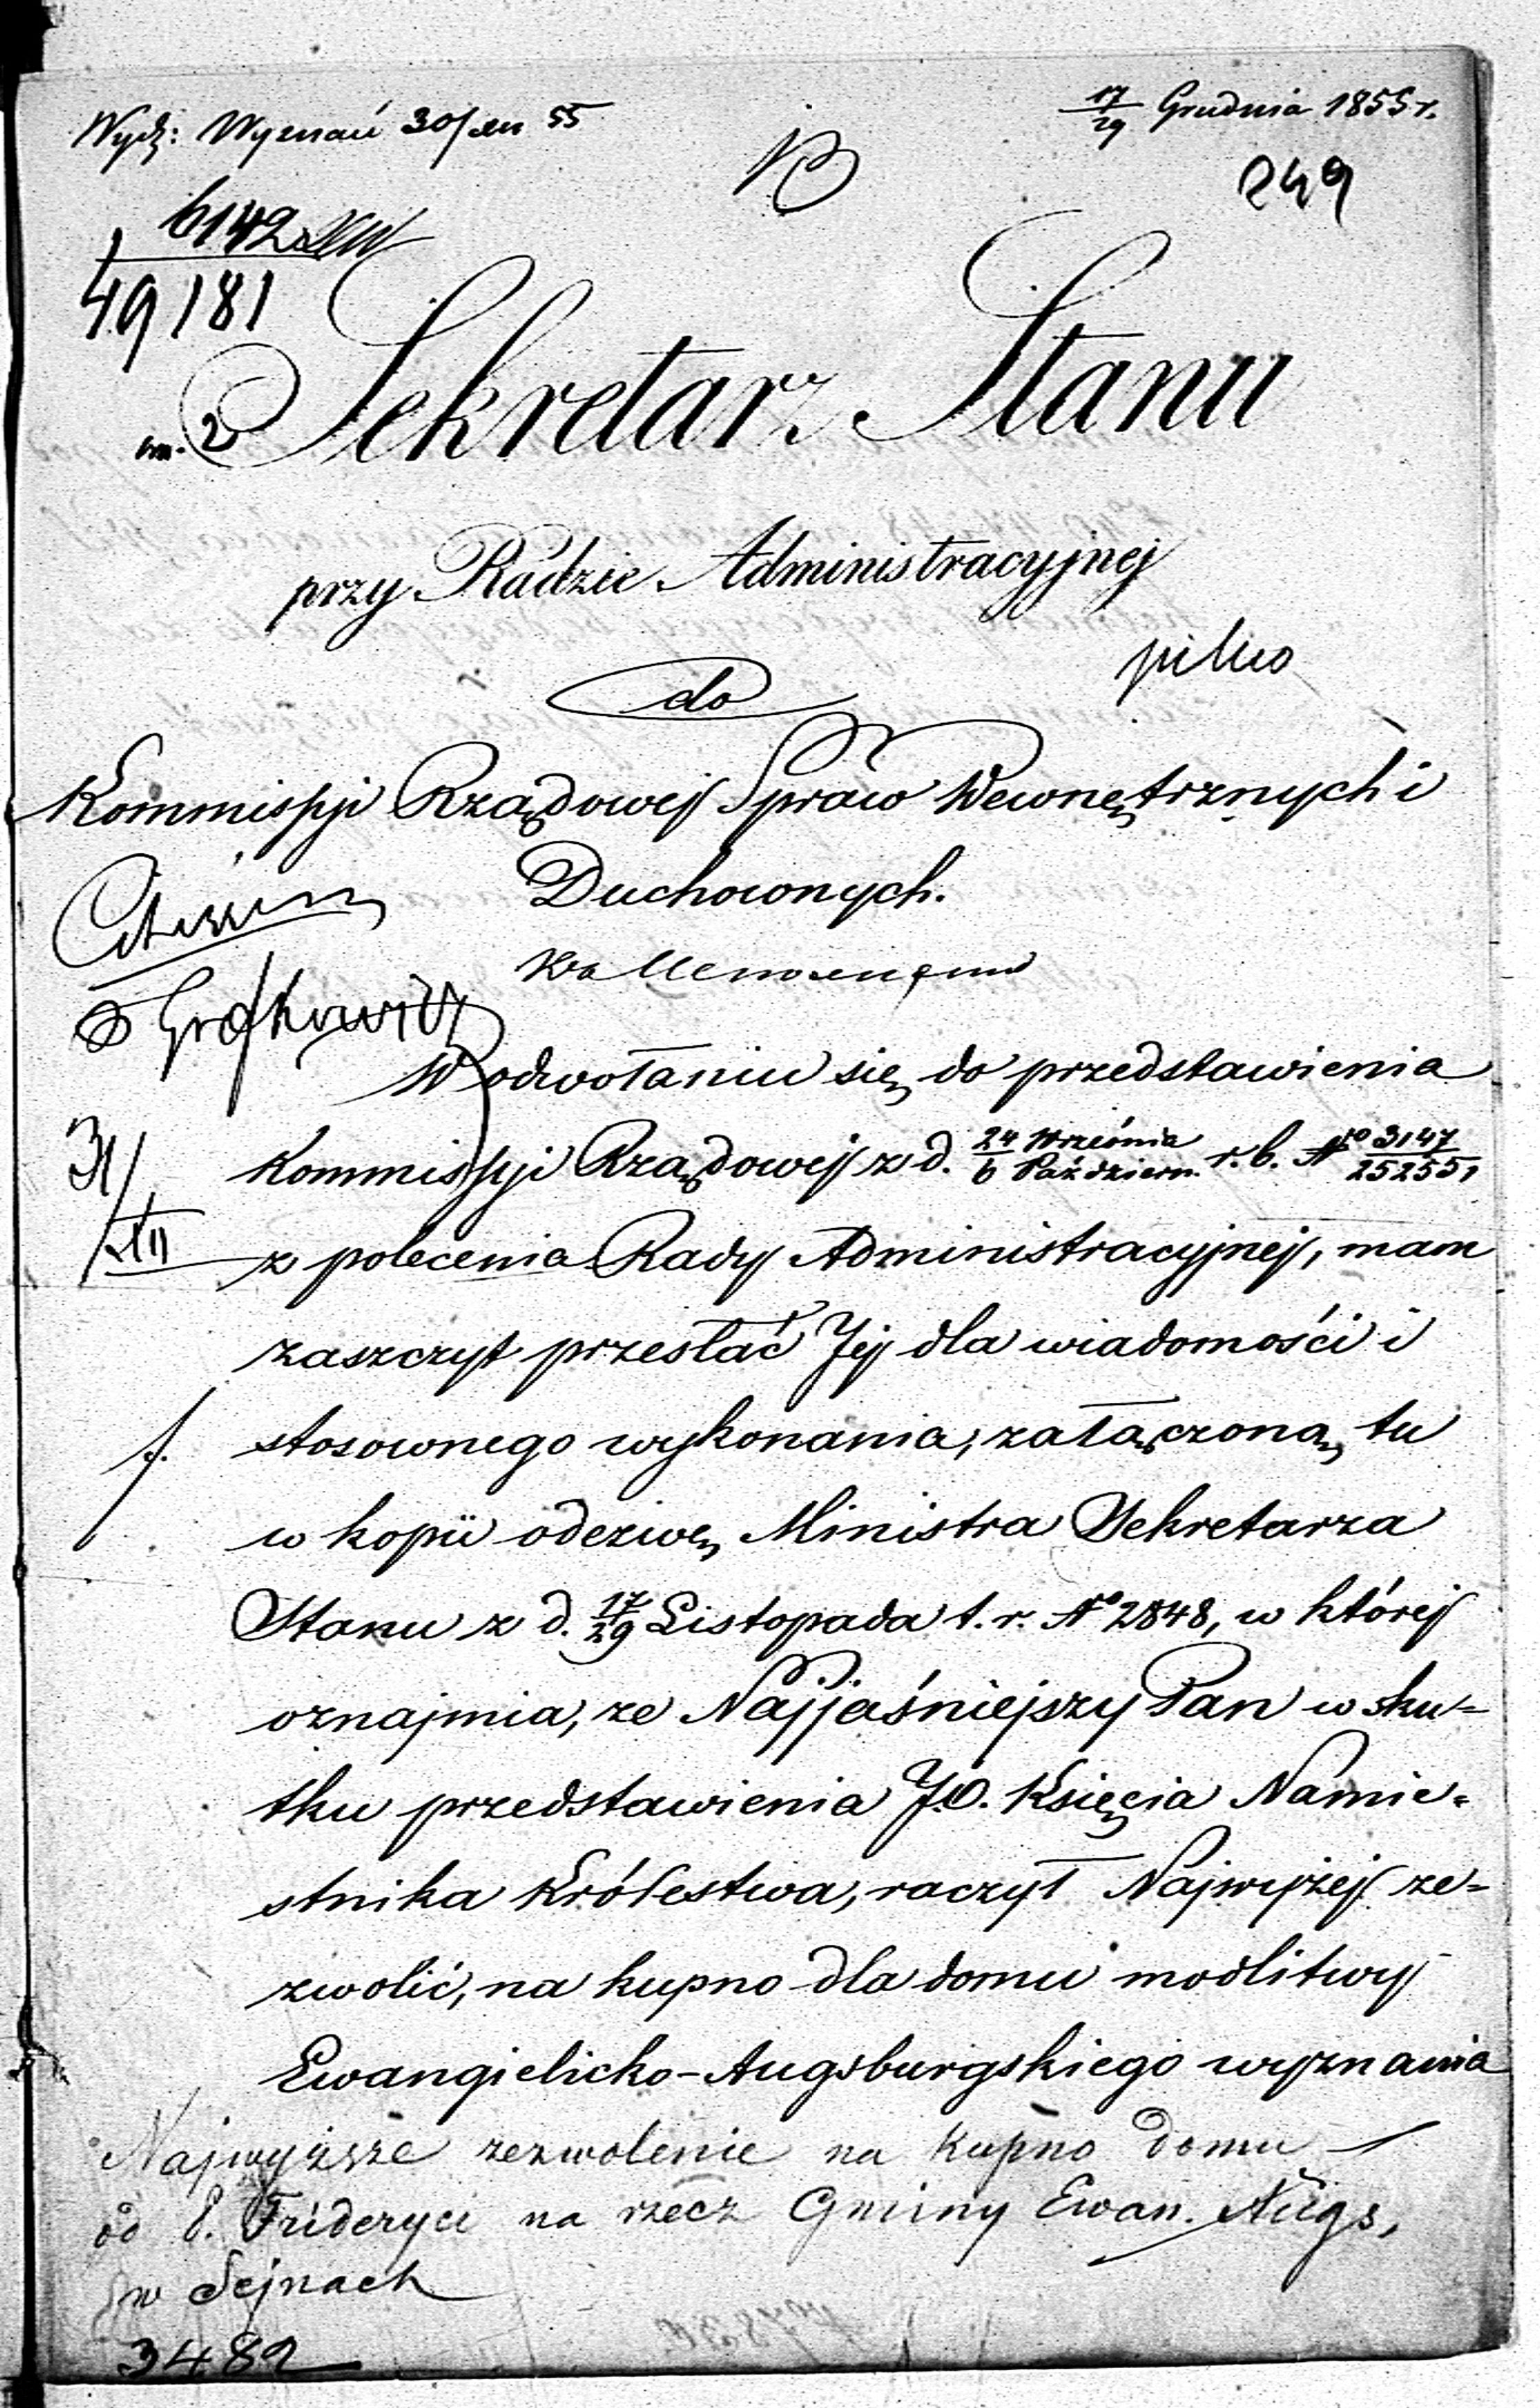 Wydz: Wyznań 30/XII 55
17/29 Grudnia 1855 r.
249
6142
49181
Sekretarz Stanu
przy Radzie Administracyjnej
pilno
do
Kommissyi Rządowej Spraw Wewnętrznych i
Duchownych.
W odwołaniu się do przedstawienia
Kommissyi Rządowej z d. 24 Września/6 Październ. r. b. No 3147/25255,
31/XII
z polecenia Rady Administracyjnej, mam
zaszczyt przesłać Jej dla wiadomości i
stosownego wykonania, załączoną tu
w kopii odezwę Ministra Sekretarza
Stanu z d. 17/29 Listopada t. r. No 2848, w której
oznajmia, że Najjaśniejszy Pan w sku-
tku przedstawienia J.O. Księcia Namie-
stnika Królestwa, raczył Najwyżej ze-
zwolić, na kupno dla domu modlitwy
Ewangielicko-Augsburgskiego wyznania
Najwyższe zezwolenie na kupno domu
od P. Fryderyci na rzecz Gminy Ewan. Augs,
w Sejnach
3482